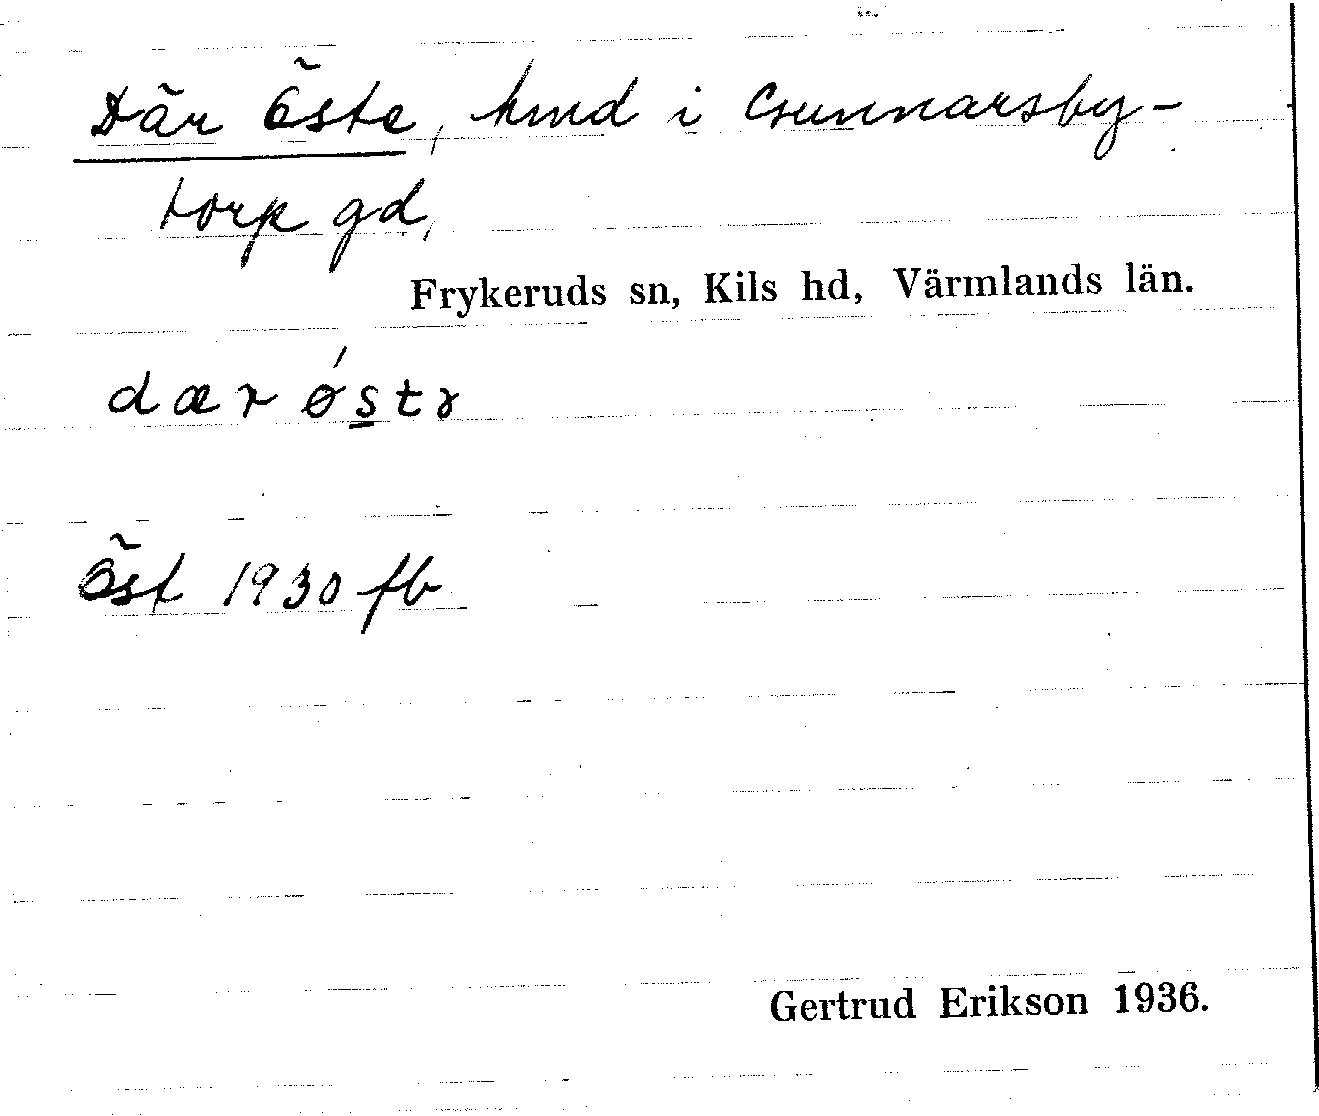 Där Öste, hmd i Gunnarsby-
torp gd,
Frykeruds sn, Kils hd, Värmlands län.
dær østr
Öst 1930 fb
Gertrud Erikson 1936.